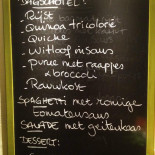 DAGSCHOTEL:
- Rijst
- Quinoa tricolore
- Quiche
- Witloof in saus
- puree met raapjes
& broccoli
- Rauwkost
SPAGHETTI met romige
tomatensaus
SALADE met geitenkaas
DESSERT: